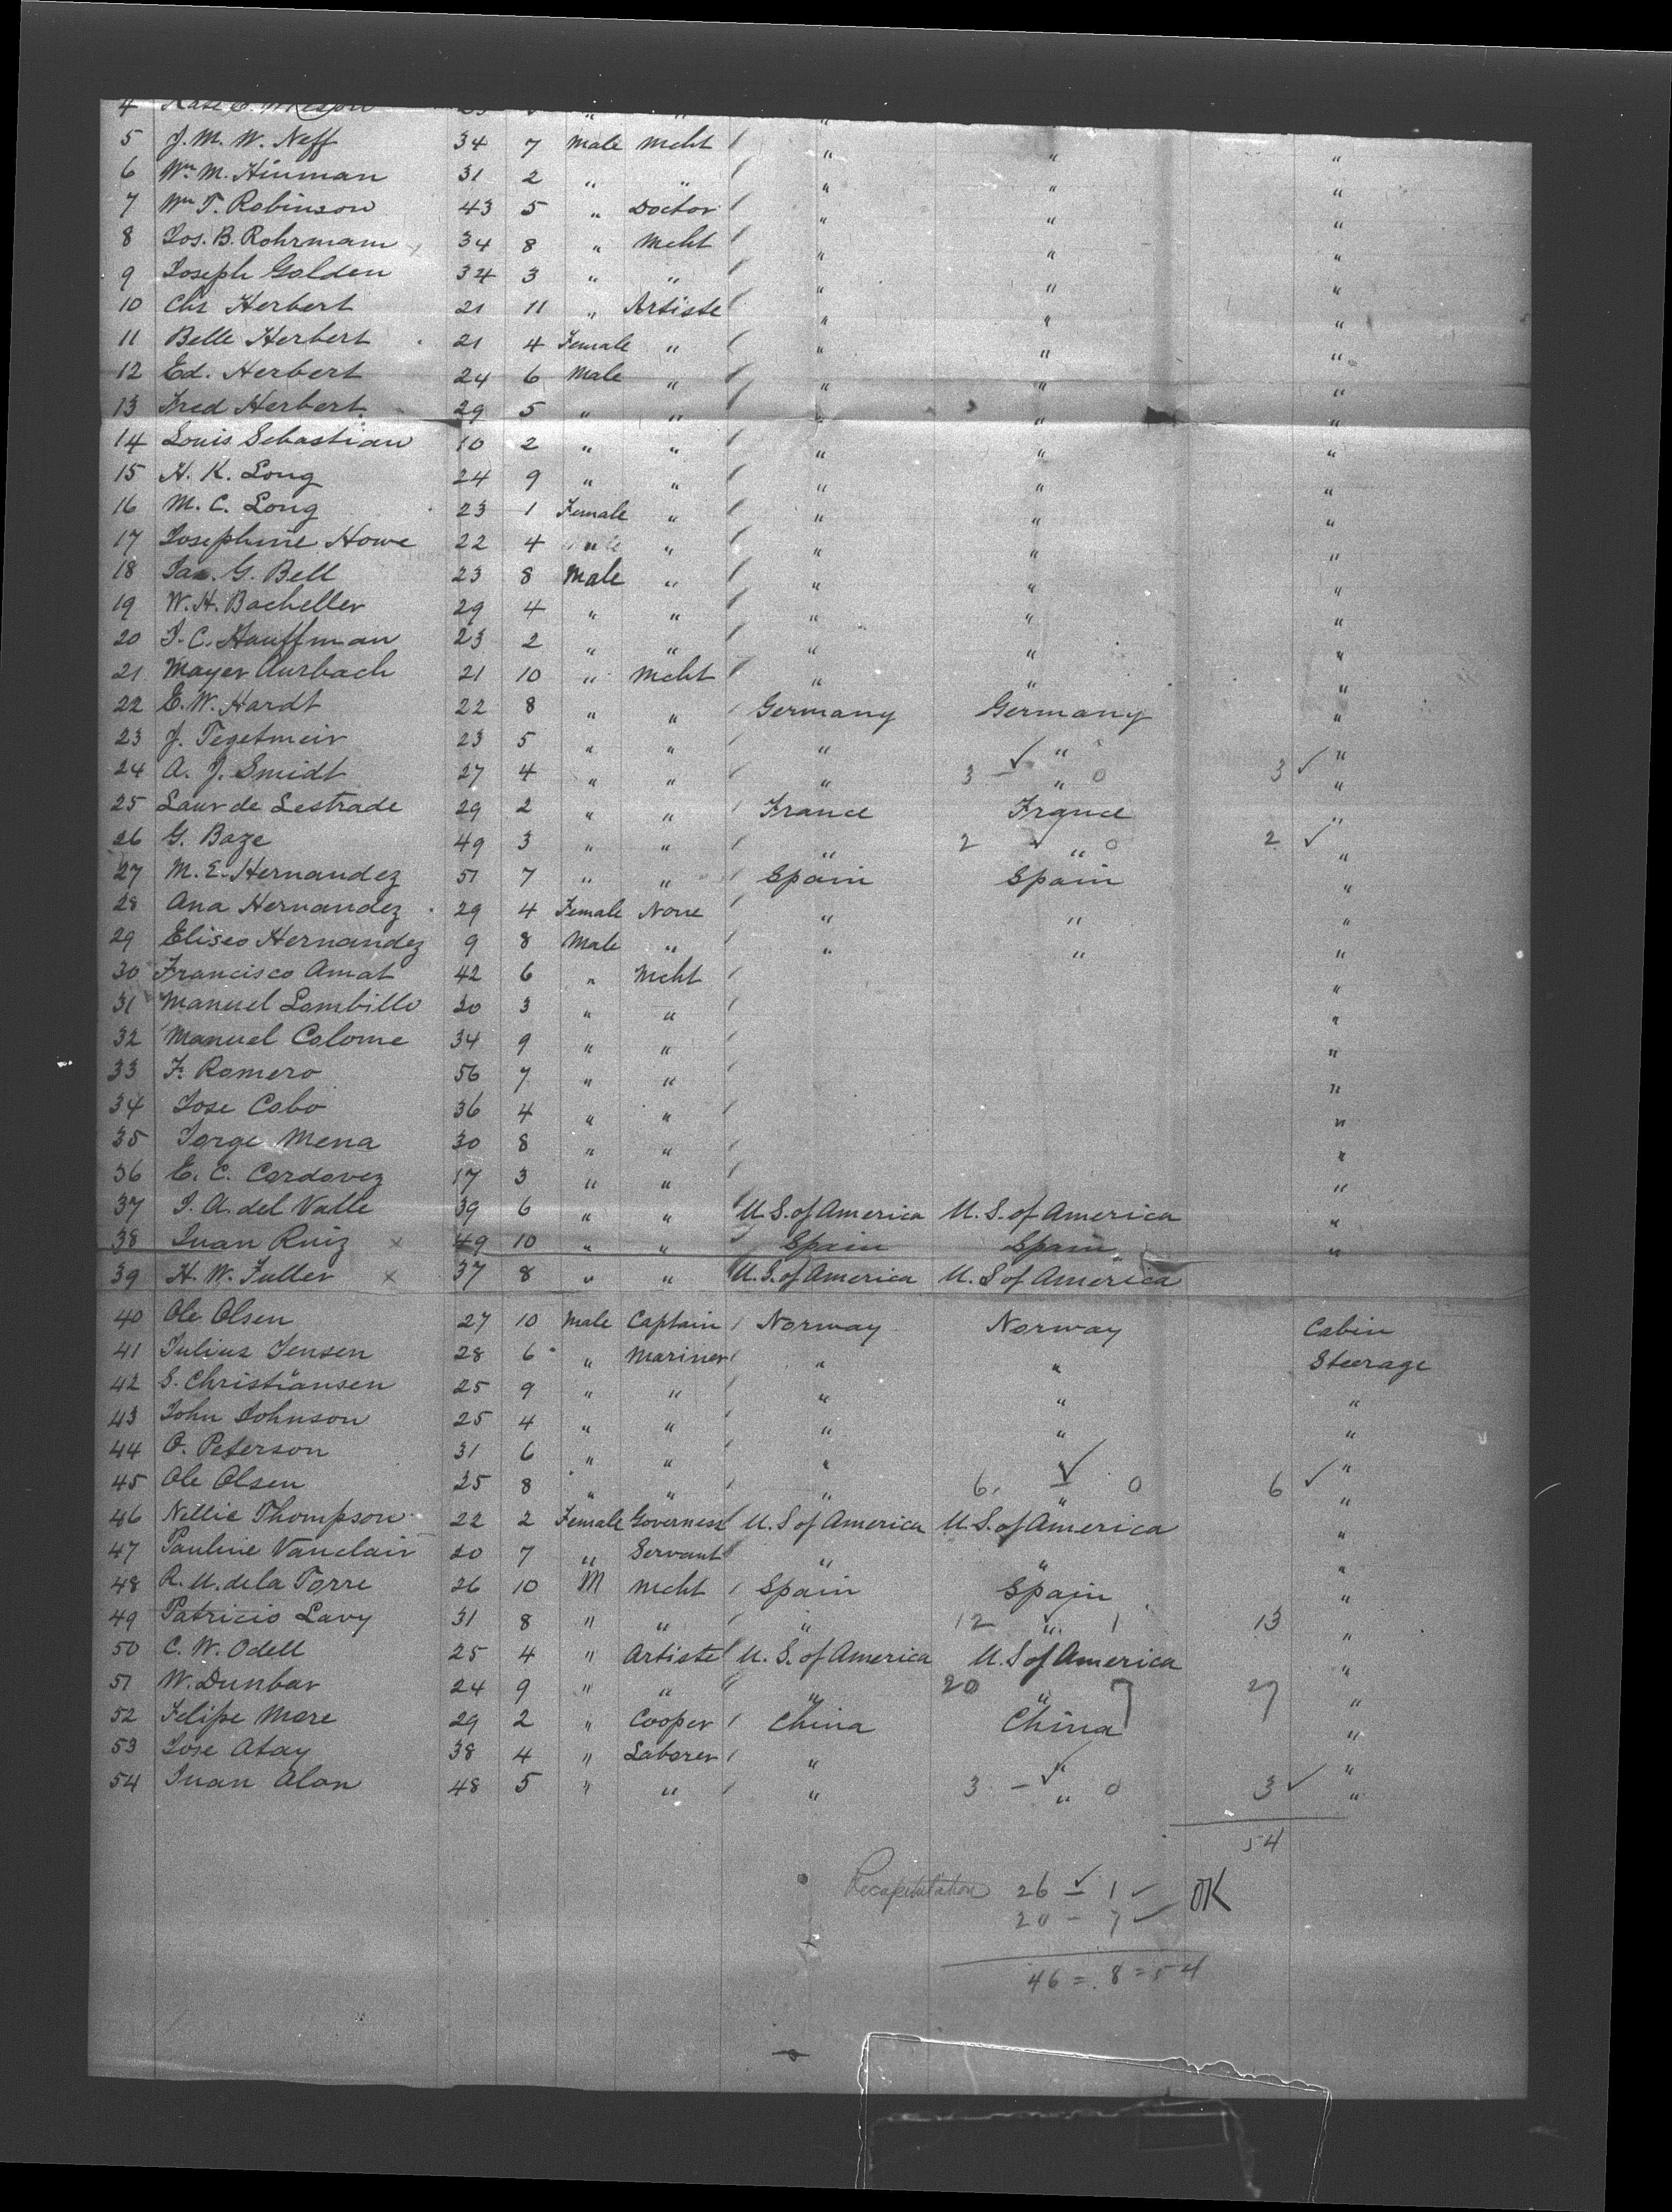 4 " " "
5 J. M. W. Neff 34 7 Male Mcht " " "
6 Wm M. Hinman 31 2 " " " " "
7 Wm T. Robinson 43 5 " Doctor " " "
8 Jos. B. Rohrmam 34 8 " Mcht " " "
9 Joseph Golden 34 3 " " " " "
10 Chs Herbert 21 11 " Artiste " " "
11 Belle Herbert 21 4 Female " " " "
12 Ed. Herbert 24 6 Male " " " "
13 Fred Herbert 29 5 " " " " "
14 Louis Sebastian 10 2 " " " " "
15 H. K. Long 24 9 " " " " "
16 M. C. Long 23 1 Female " " " "
17 Josephine Howe 22 4 " " " "
18 Jas. G. Bell 23 8 Male " " " "
19 W. H. Bacheller 29 4 " " " " "
20 J. C. Hauffman 23 2 " " " " "
21 Mayer Aurbach 21 10 " Mcht " " "
22 E. W. Hardt 22 8 " " Germany Germany "
23 J. Tegetmeir 23 5 " " " " "
24 A. J. Smidt 27 4 " " " 3 – " 0 3 ✓ "
25 Laur de Lestrade 29 2 " " France France "
26 G. Baze 49 3 " " " 2 " 0 2 ✓ "
27 M. E. Hernandez 51 7 " " Spain Spain "
28 Ana Hernandez 29 4 Female None " " "
29 Eliseo Hernandez 9 8 Male " " " "
30 Francisco Amat 42 6 " Mcht "
31 Manuel Lombillo 30 3 " " "
32 Manuel Colome 34 9 " " "
33 F. Romero 56 7 " " "
34 Jose Cabo 36 4 " " "
35 Jorge Mena 30 8 " " "
36 E. C. Cordovez 17 3 " " "
37 J. A. del Valle 39 6 " " U.S. of America U.S. of America "
38 Juan Ruiz x 49 10 " " Spain Spain "
39 H. W. Fuller x 37 8 " " U.S. of America U.S of America
40 Ole Olsen 27 10 Male Captain Norway Norway Cabin
41 Julius Jensen 28 6 " Mariner " " Steerage
42 S. Christiansen 25 9 " " " " "
43 John Johnson 25 4 " " " " "
44 O. Peterson 31 6 " " " " "
45 Ole Olsen 25 8 " " " 6. – " 0 6 ✓ "
46 Nellie Thompson 22 2 Female Governess U.S of America U.S. of America "
47 Pauline Vanclair 20 7 " Servant " " "
48 R. U. de la Torre 26 10 M Mcht Spain Spain "
49 Patricio Lavy 31 8 " " " 12 " 1 13 "
50 C. W. Odell 25 4 " Artiste U.S. of America U.S of America "
51 W. Dunbar 24 9 " " " 20 " 7 27 "
52 Felipe More 29 2 " Cooper China China "
53 Jose Atay 38 4 " Laborer " " "
54 Juan Alon 48 5 " " " 3 – " 0 3 ✓ "
54
Recapitulation 26 – 1 ✓ OK
20 – 7 ✓
46 = 8 = 54